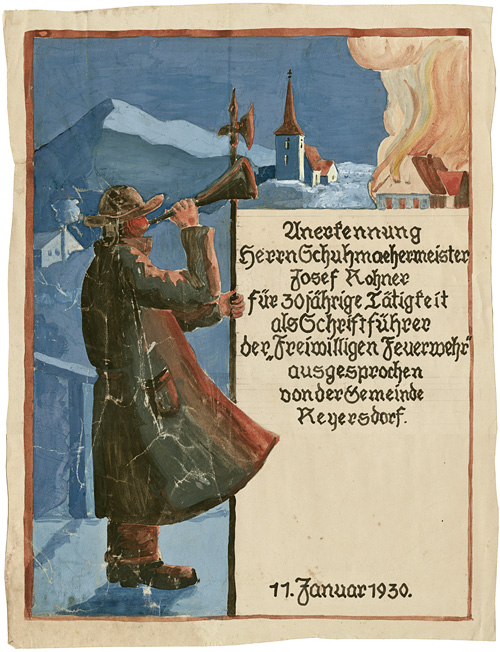 Anerkennung
Herrn Schuhmachermeister
Josef Rohner
für 30 jährige Tätigkeit
als Schriftführer
der „Freiwilligen Feuerwehr“
ausgesprochen
von der Gemeinde
Reyersdorf.
11. Januar 1930.